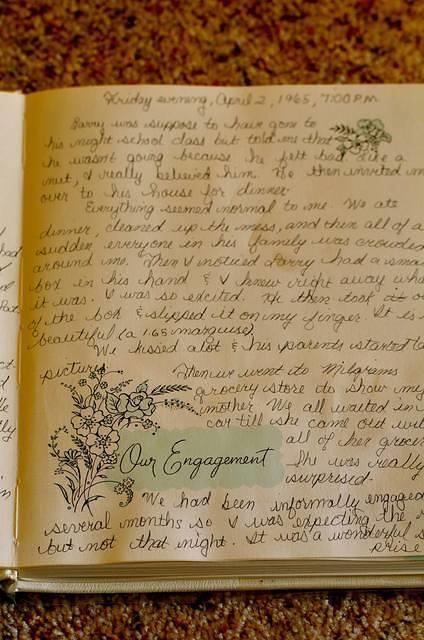 Friday evening, April 2, 1965, 7:00 P.M.
Larry was suppose to have gone to
his night school class but told me that
he wasn't going because he felt bad. Like a
nut, I really believed him. He then invited
over to his house for dinner.
Everything seemed normal to me. We ate
dinner, cleaned up the mess, and then all of a
sudden everyone in his family was
around me. Then I noticed Larry had a
box in his hand & I knew right away
it was. I was so excited. He then took it
of the box & slipped it on my finger. It is
beautiful (a 1.65 marquise)
We kissed alot & his parents started
pictures.
Then we went to Milgrams
grocery store to show my
mother. We all waited in
car till she came out
all of her
She was really
surprised.
Our Engagement
We had been informally engaged
several months so I was expecting the
but not that night. It was a wonderful
prise
had